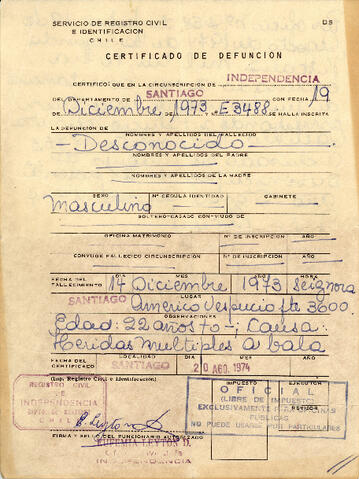 SERVICIO DE REGISTRO CIVIL
E IDENTIFICACION
CHILE
D S
CERTIFICADO DE DEFUNCION
CERTIFICO: QUE EN LA CIRCUNSCRIPCION DE INDEPENDENCIA
DEL DEPARTAMENTO DE SANTIAGO CON FECHA 19
DE Diciembre DE 1973 E 3488 SE HALLA INSCRITA
LA DEFUNCION DE
NOMBRES Y APELLIDOS DEL FALLECIDO
- Desconocido -
NOMBRES Y APELLIDOS DEL PADRE
NOMBRES Y APELLIDOS DE LA MADRE
SEXO Nº CEDULA IDENTIDAD GABINETE
Masculino
SOLTERO-CASADO CON-VIUDO DE
OFICINA MATRIMONIO Nº DE INSCRIPCION AÑO
CONYUGE FALLECIDO CIRCUNSCRIPCION Nº DE INSCRIPCION AÑO
FECHA DEL FALLECIMIENTO DIA MES AÑO
14 Diciembre 1973
LUGAR
SANTIAGO Américo Vespucio pte 3600
OBSERVACIONES
Edad: 22 años to -; Causa:
Heridas multiples a bala
FECHA DEL CERTIFICADO LOCALIDAD DIA MES AÑO
SANTIAGO 20 AGO. 1974
(Imp. Registro Civil e Identificación)
IMPUESTO EJECUTOR
REVISOR
REGISTRO CIVIL
INDEPENDENCIA
CHILE
OFICIAL
(LIBRE DE IMPUESTO)
EXCLUSIVAMENTE PARA OFICINAS
PUBLICAS
NO PUEDE USARSE POR PARTICULARES
FIRMA Y SELLO DEL FUNCIONARIO AUTORIZADO
EUGENIA LEYTON D.
INDEPENDENCIA